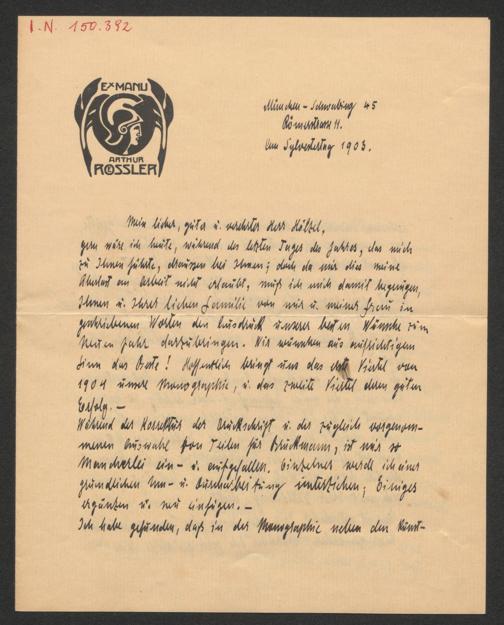 I.N. 150.392
EX MANU
ARTHUR
RŒSSLER
München-Schwabing 45
Römerstrasse 11.
Am Sylvestertag 1903.
Mein lieber, guter u. verehrter Herr Hölzel,
gern wäre ich heute, während des letzten Tages des Jahres, das mich
zu Ihnen führte, draussen bei Ihnen; doch da mir dies meine
Überlast an Arbeit nicht erlaubt, muß ich mich damit begnügen,
Ihnen u. Ihrer lieben Familie von mir u. meiner Frau in
geschriebenen Worten den Ausdruck unserer besten Wünsche zum
neuen Jahr darzubringen. Wir wünschen aus aufrichtigem
Sinn das Beste! Hoffentlich bringt uns das erste Viertel von
1904 unsere Monographie, u. das zweite Viertel deren guten
Erfolg. —
Während der Korrektur der Druckschrift u. der zugleich vorgenom-
menen Auswahl von Teilen für Bruckmann, ist mir so
Mancherlei ein- u. aufgefallen. Einzelnes werde ich einer
gründlichen Um- u. Durcharbeitung unterziehen; Einiges
ergänzen u. neu einfügen. —
Ich habe gefunden, daß in der Monographie neben den Künst-